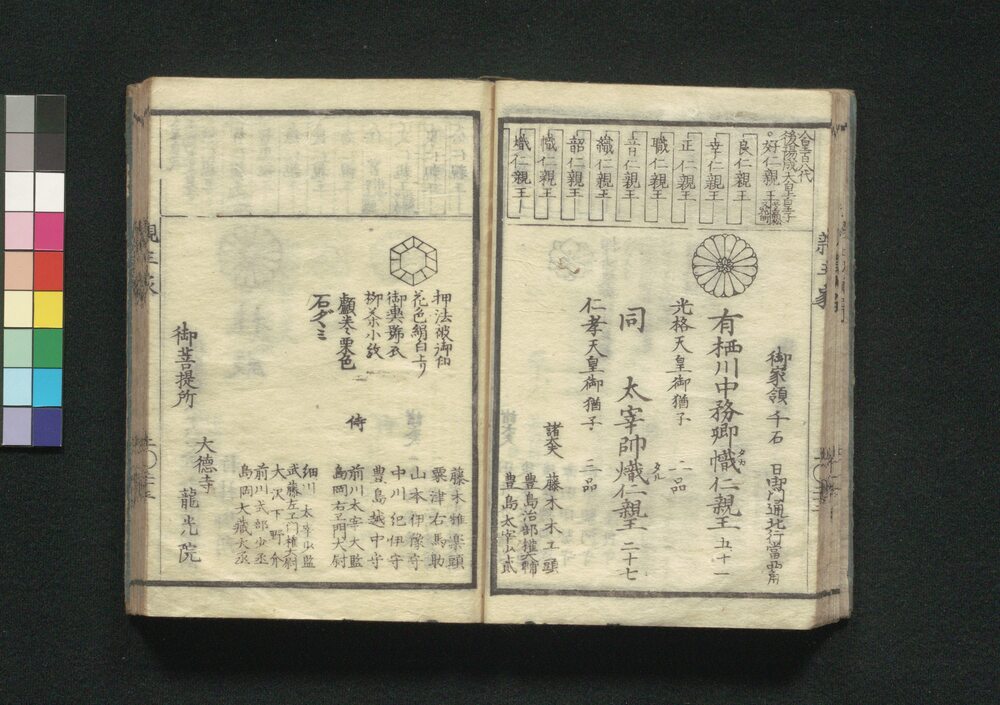 後陽成天皇皇子
好仁親王
良仁親王
幸仁親王
正仁親王
職仁親王
織仁親王
韶仁親王
幟仁親王
熾仁親王
御家領千石
有栖川中務卿幟仁親王 五十一
タカ
光格天皇御猶子 一品
同 太宰帥熾仁親王 二十七
タル
仁孝天皇御猶子 二品
諸大夫
藤木木工頭
豊島治部権大輔
豊島太宰少貳
親王家
花色絹白上り
柳茶小紋
石ダヽミ
侍
藤木雅楽頭
粟津右馬助
山本伊豫守
中川紀伊守
豊島越中守
前川太宰大監
島岡右エ門大尉
細川太宰少監
武藤左エ門権大尉
大沢下野介
前川式部少丞
島岡大蔵大丞
御菩提所
大徳寺 龍光院